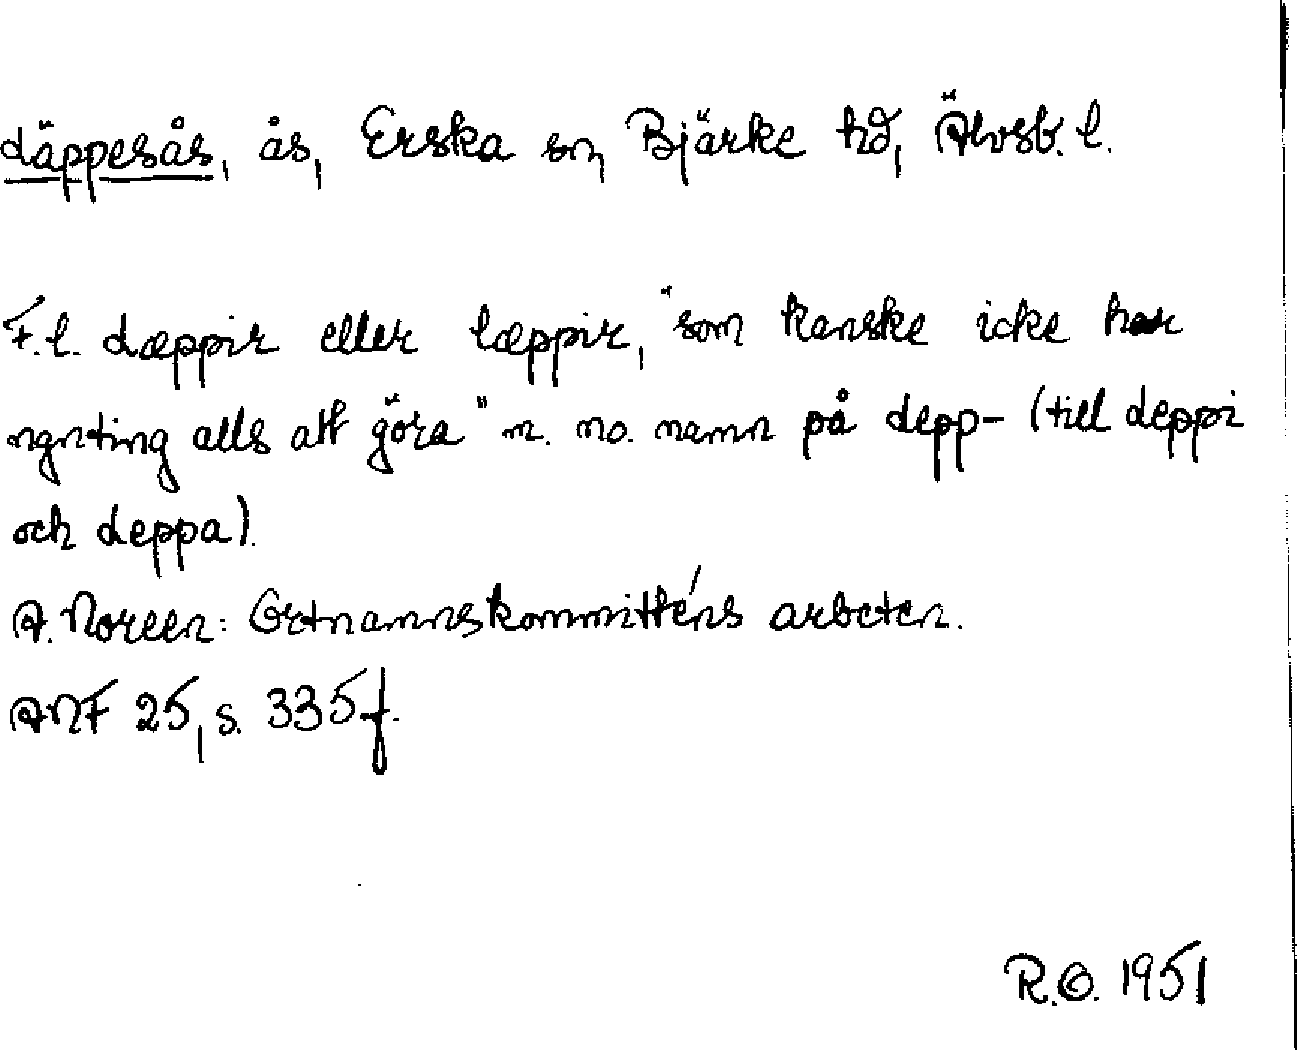 däppesås, ås, Erska sn, Bjärke hd, Älvsb. l.
F.l. dæppir eller læppir, "som kanske icke har
ngnting alls att göra" m. no. namn på depp- (till deppi
och deppa).
A. Noreen: Ortnamnskommitténs arbeten.
ANF 25, s. 335 f.
R.O. 1951